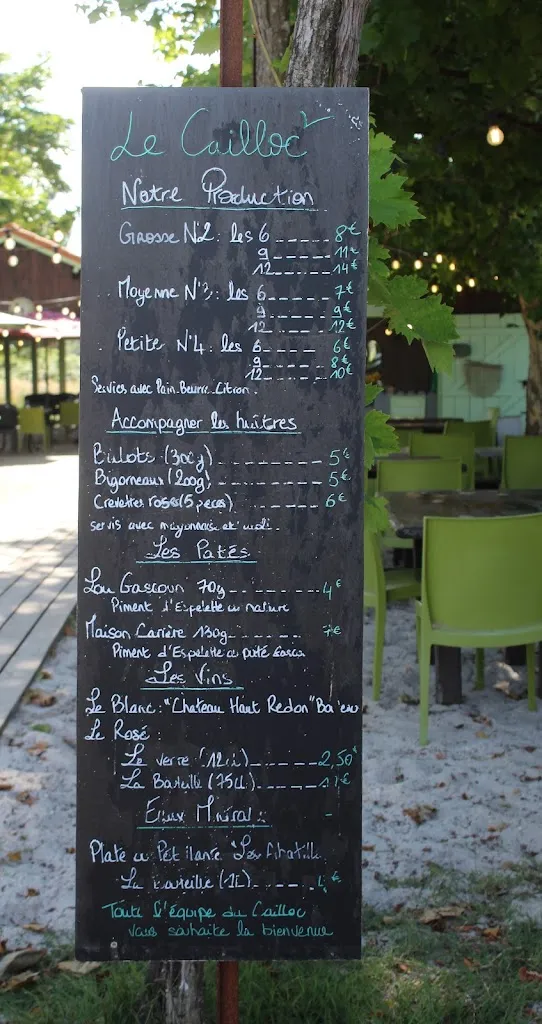 Le Cailloc
Notre Production
Grosse N°2: les 6 ----- 8€
9 ----- 11€
12 ----- 14€
Moyenne N°3: les 6 ----- 7€
9 ----- 9€
12 ----- 12€
Petite N°4: les 6 ----- 6€
9 ----- 8€
12 ----- 10€
Servies avec Pain. Beurre. Citron.
Accompagner les huîtres
Bulots (300g) ----- 5€
Bigorneaux (200g) ----- 5€
Crevettes roses (5 pièces) ----- 6€
servis avec mayonnaise et
Les Patés
Lou Gascoun 70g ----- 4€
Piment d'Espelette ou nature
Maison Carière 130g ----- 7€
Piment d'Espelette ou
Les Vins
Le Blanc: "Chateau Haut Redon"
Le Rosé:
Le verre (12cl) ----- 2,50€
La Bouteille (75cl) -----
Eaux
Plate ou Pétillante
La bouteille (1L) -----
Toute l'équipe du Cailloc
vous souhaite la bienvenue